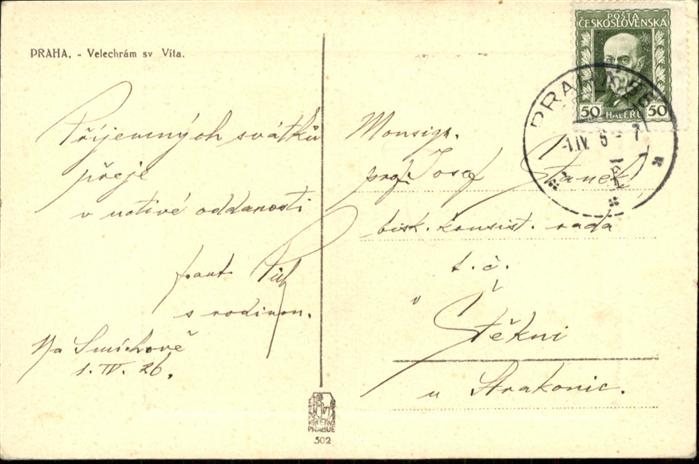 PRAHA. - Velechrám sv Víta.
Příjemných svátků
přeje
v uctivé oddanosti
frant.
s rodinou.
Na Smíchově
1. IV. 26.
POŠTA
ČESKOSLOVENSKÁ
50 HALÉŘŮ 50
PRAHA
-1.IV. 6 - 7
Monsign.
prof. Josef Staněk
bisk. konsist. rada
t. č.
v
Štěkni
u Strakonic.
PRAGUE
502